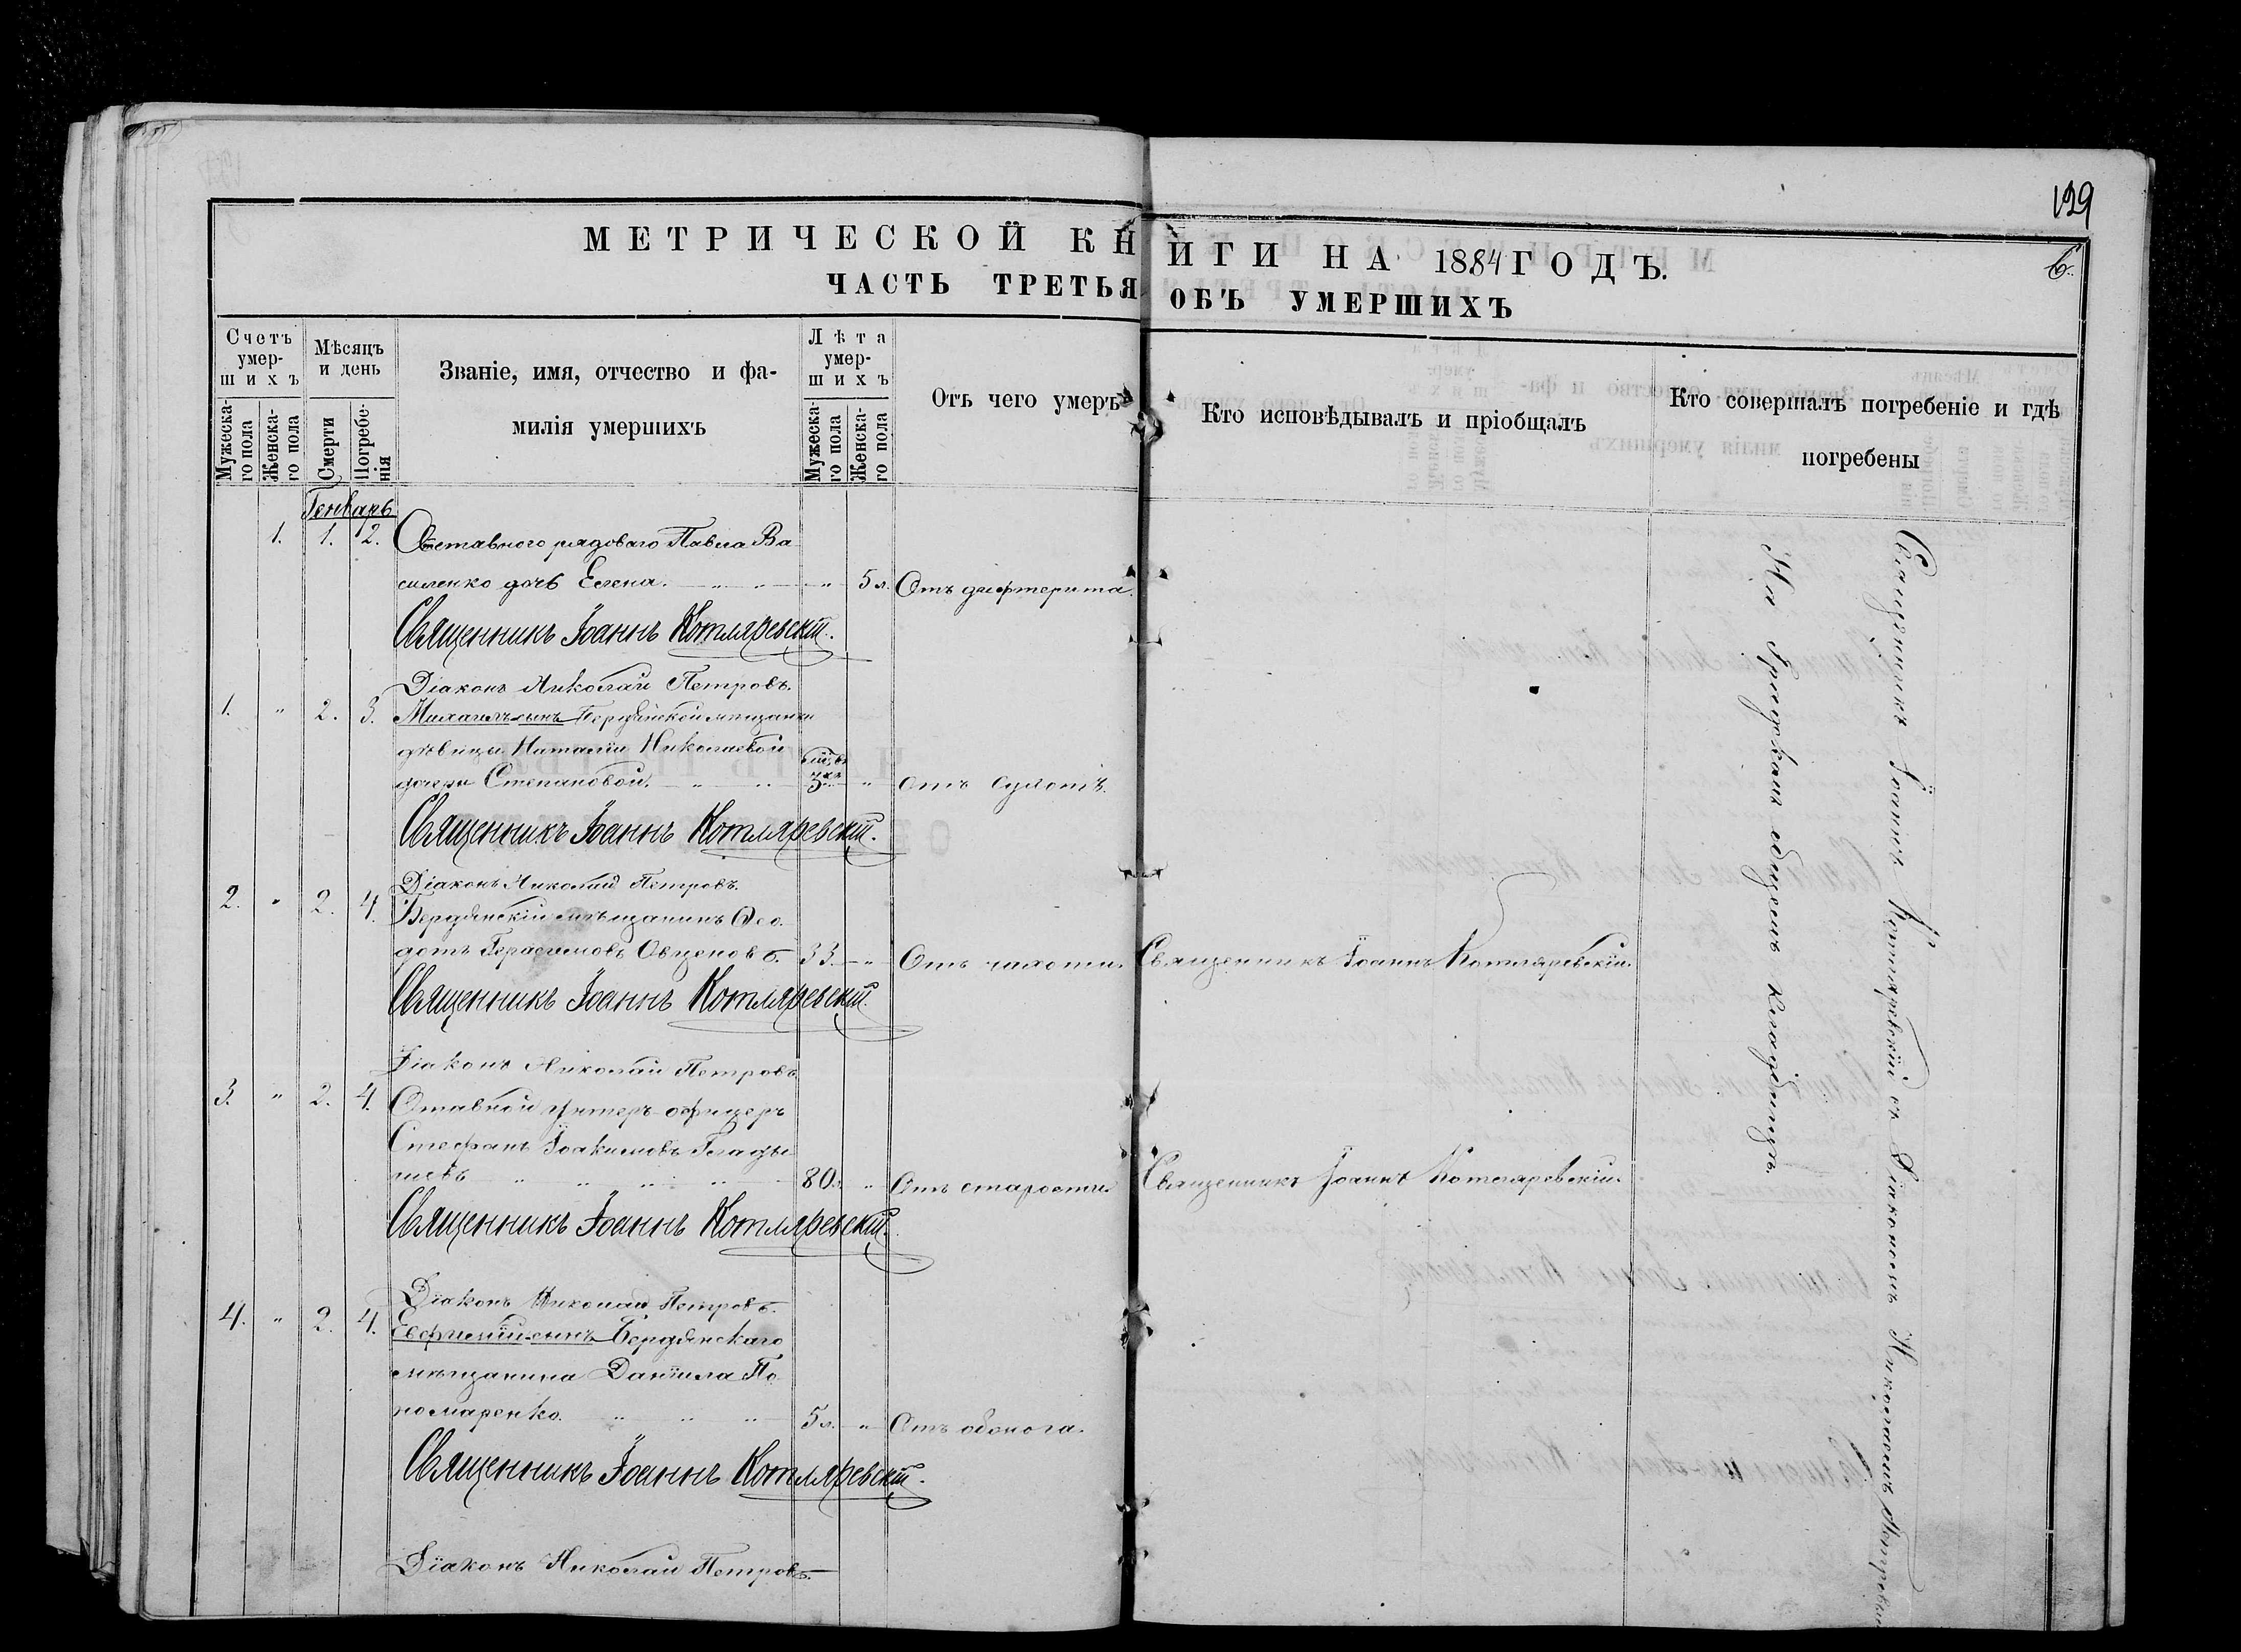 129
МЕТРИЧЕСКОЙ КНИГИ НА 1884 ГОДЪ.
6.
ЧАСТЬ ТРЕТЬЯ ОБЪ УМЕРШИХЪ
Счетъ умер-шихъ
Мужеска-го пола
Женска-го пола
Мѣсяцъ и день
Смерти
Погребе-нія
Званіе, имя, отчество и фа-
милія умершихъ
Лѣта умер-шихъ
Мужеска-го пола
Женска-го пола
Отъ чего умеръ
Кто исповѣдывалъ и пріобщалъ
Кто совершалъ погребеніе и гдѣ
погребены
Генварь
1. 1. 2. Отставного рядоваго Павла Ва
силенко дочь Елена. " 5 л. Отъ дифтерита.
Священникъ Іоаннъ Котляревскій.
Діаконъ Николай Петровъ.
1. " 2. 3. Михаилъ сынъ Бердянской мѣщанки
дѣвицы Наталіи Николаевой
дочери Степановой. 3 " Отъ сухотъ.
Священникъ Іоаннъ Котляревскій.
Діаконъ Николай Петровъ.
2. " 2. 4. Бердянскій мѣщанинъ Ѳео
дотъ Герасимовъ Овценовъ. 33 " Отъ чахотки. Священникъ Іоаннъ Котляревскій.
Священникъ Іоаннъ Котляревскій.
Діаконъ Николай Петровъ
3. " 2. 4. Отавной унтеръ офицеръ
Стефанъ Іоакимовъ Глады
шевъ 80 л. " Отъ старости. Священникъ Іоаннъ Котляревскій.
Священникъ Іоаннъ Котляревскій.
Діаконъ Николай Петровъ.
4. " 2. 4. Евфимій сынъ Бердянскаго
мѣщанина Даніила По
номаренко. 5 л. " Отъ обжога.
Священникъ Іоаннъ Котляревскій.
Діаконъ Николай Петровъ.
Священникъ Іоаннъ Котляревскій съ Діакономъ Николаемъ Петровым
На градскомъ общемъ кладбищѣ.